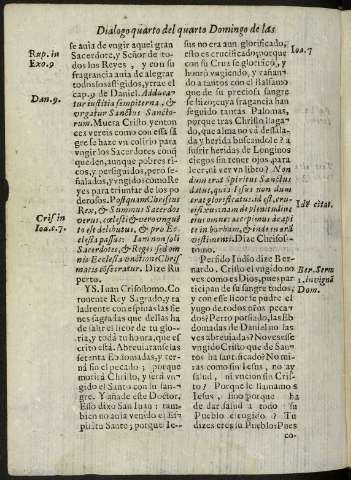 Dialogo quarto del quarto Domingo de las
Rup. in
Exo. 9
Dan. 9.
Chris. in
Ioa. c. 7.
se auia de vngir aquel gran
Sacerdote, y Señor de to-
dos los Reyes, y con su
fragrancia auia de alegrar
todos los affligidos, y trae el
cap. 9 de Daniel. Adduca-
tur iustitia sempiterna, &
vngatur Sanctus Sancto-
rum. Muera Christo, y enton
ces vereis como con essa sã
gre se haze vn colirio para
vngir los Sacerdotes con q̃
queden, aunque pobres ri-
cos, y perseguidos, pero se-
ñalados, y vngidos como Re
yes para triunfar de los po
derosos. Postquam Christus
Rex, & Summus Sacerdos
verus, cœlesti & vero vnguẽ
to est delibutus, & pro Ec-
clesia passus: Iam non soli
Sacerdotes, & Reges sed om
nis Ecclesia vnctione Chris
matis consecratur. Dize Ru
perto.
YS. Iuan Crisostomo. Co
ronente Rey Sagrado, y ta
ladrente con espinas las sie
nes sagradas que dellas ha
de salir el licor de tu glo-
ria, y toda tu honra, que es
crito está. Abreuiaranse las
setenta Ebdomadas, y ten-
drá fin el pecado; porque
morirà Christo, y serà vn-
gido el Santo con su san-
gre. Y añade este Doctor,
Esso dixo San Iuan: tam-
bien no auia venido el Es-
piritu Santo; porque Ie-
sus no era aun glorificado,
esto es crucificado; porque
con su Cruz se glorificò, y
honrò vngiendo, y vañan-
do a tantos con el balsamo
que de su preciosa sangre
se hizo; cuya fragancia han
seguido tantas Palomas,
porque tras Christo llaga-
do, que alma no va desala-
da, y herida buscandole? a
sufrir heridas de Longinos
ciegos sin tener ojos, para
leer; qui ver vn libro? Non
dum erat Spiritus Sanctus
datus, quia Iesus non dum
erat glorificatus. id est, cru-
cifixus, cum de plenitudine
eius omnes accepimus a capi
te in barbam, & inde in ora
vestimenti. Dize Chrisos-
tomo.
Perfido Iudio dize Ber-
nardo. Christo el vngido no
ves como es Dios, pues par
ticipan de su sangre todos,
y con esse licor se pudre el
yugo de todos nr̃os peca-
dos? Perro porfiado, las Eb
domadas de Daniel no las
ves abreuiadas? No ves esse
vngido Christo que de San-
tos ha santificado? No mi-
ras como sin Iesus, no ay
salud, ni vncion sin Cris-
to? Porque le llamamos
Iesus, sino porque ha
de dar salud a todo su
Pueblo escogido? Tu
dizes eres su Pueblo: Pues
co-
Ioa. 7
Idẽ citat.
Ber. Serm
1. in vigiliã
Dom.